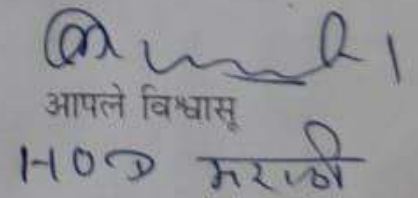 आपले विश्वासू
HOD मराठी